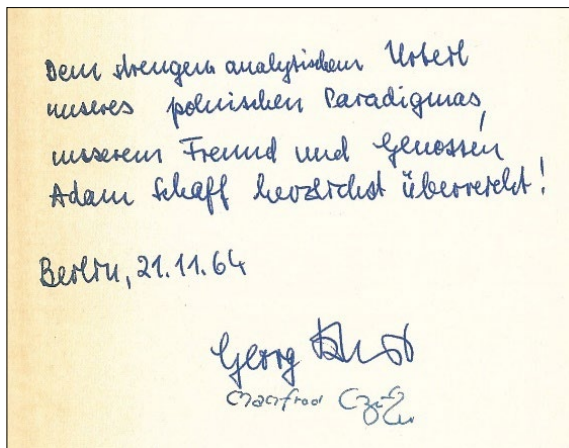 Dem strengem analytischem Urteil
unseres polnischen Paradigmas,
unserem Freund und Genossen
Adam Schaff herzlichst überreicht!
Berlin, 21.11.64
Georg Klaus
Manfred